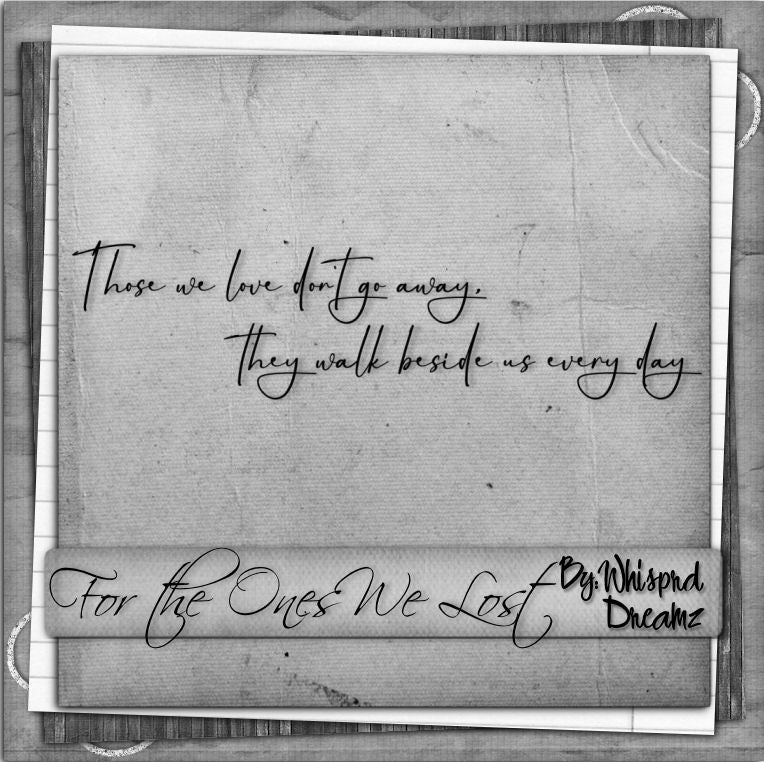 Those we love don't go away,
they walk beside us every day
For the Ones We Lost
By: Whisprd
Dreamz